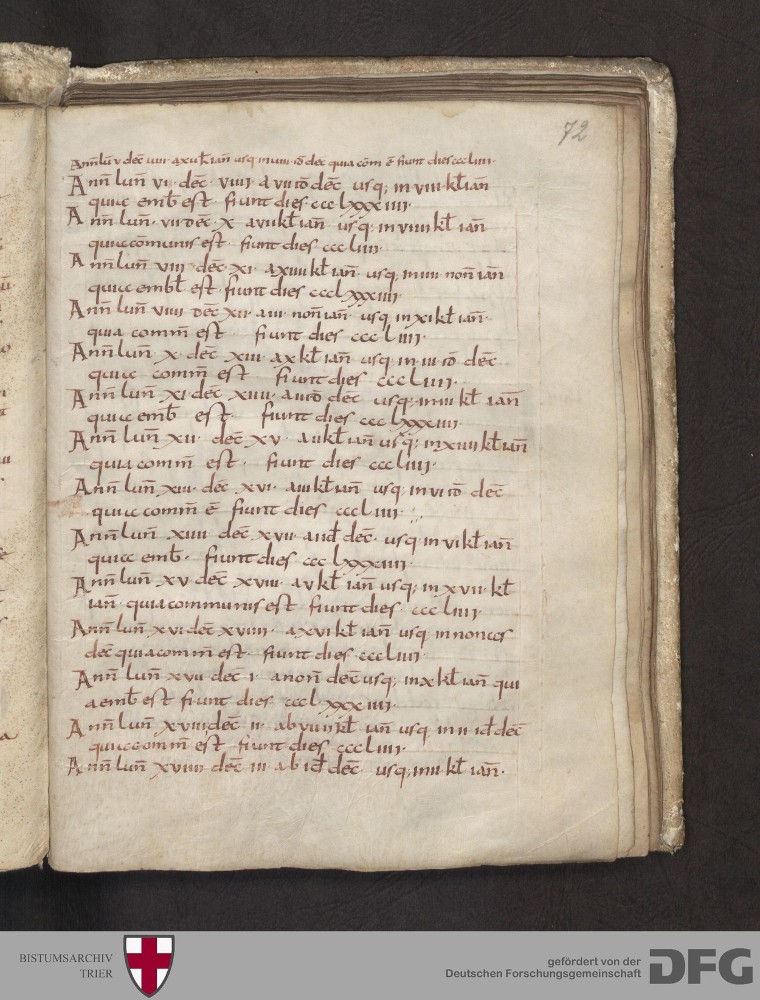 72
Anñ lũ v dec̃ viiii · a xv kł iañ usq; in viii · id̃ dec̃ quia com̃ ẽ fiunt dies cccliiii ·
Anñ luñ vi · dec̃ · viiii · a vii id̃ dec̃ usq; in viii · kł iañ
quia emb̃ est · fiunt dies ccc lxxxiiii ·
Anñ luñ · vii dec̃ · x · a vii kł iañ usq; in viiii kł iañ
quia cõmunis est · fiunt dies ccc liiii ·
Anñ luñ viii · dec̃ · xi · a xiiii kł iañ · usq; in iiii noñ iañ
quia embł est · fiunt dies ccclxxxiiii ·
Anñ luñ viiii dec̃ · xii · a iii · noñ iañ · usq in xi kł iañ ·
quia comm̃ est fiunt dies ccc liiii ·
Anñ luñ · x · dec̃ xiii · a x kł iañ usq in iii id̃ dec̃
quia comm̃ est fiunt dies cccliiii ·
Anñ luñ xi · dec̃ xiiii · a ii id̃ dec̃ usq; in iiii kł iañ
quia emb̃ est · fiunt dies ccc lxxxiiii ·
Anñ luñ xii · dec̃ xv · a iii kł iañ usq; in xiiii kł iañ
quia comm̃ est · fiunt dies cccliiii ·
Anñ luñ xiii · dec̃ xvi · a iiii kł iañ usq; in vi id̃ dec̃
quia comm̃ ẽ fiunt dies cccliiii ·
Anñ luñ xiiii dec̃ xvii · a iid̃ dec̃ · usq; in vi kł iañ
quia emb̃ · fiunt dies ccc lxxxiiii ·
Anñ luñ xv dec̃ xviii · a v kł iañ usq; in xvii · kł
iañ · quia communis est fiunt dies ccc liiii ·
Anñ luñ xvi dec̃ xviiii · a xvi kł iañ usq in nonas
dec̃ quia comm̃ est · fiunt dies cccliiii ·
Anñ luñ xvii dec̃ i · a noñ dec̃ usq; in x kł iañ qui
a emb̃ est fiunt dies cccl xxxiiii ·
Anñ luñ xviii dec̃ ii · ab viiii kł iañ usq in ii id̃ dec̃
quia comm̃ est fiunt dies cccliiii ·
Anñ luñ xviiii dec̃ iii ab id̃ dec̃ usq; in iii kł iañ ·
BISTUMSARCHIV
TRIER
gefördert von der
Deutschen Forschungsgemeinschaft
DFG